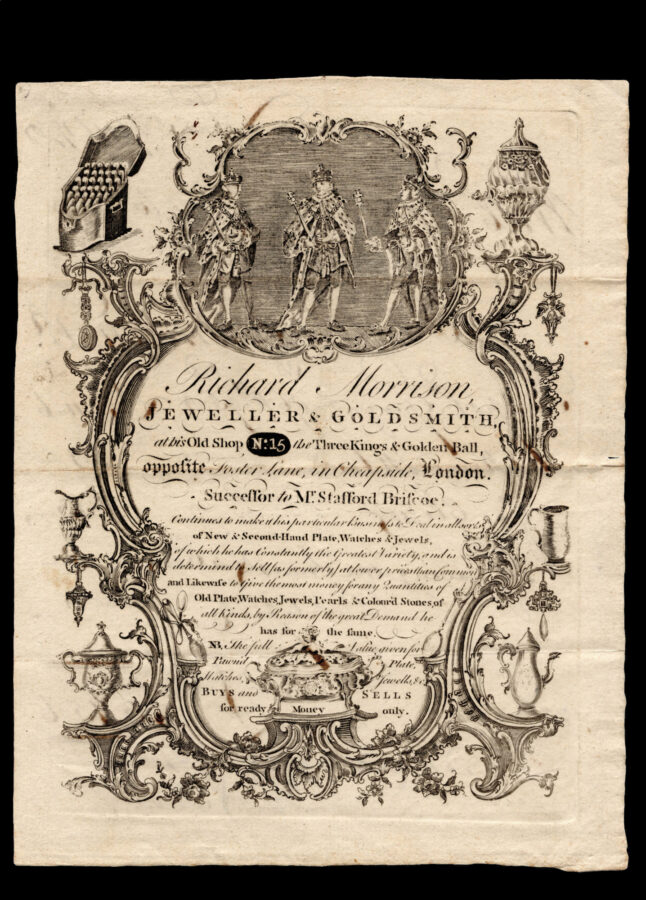 Richard Morrison,
JEWELLER & GOLDSMITH,
at his Old Shop No: 15 the Three Kings & Golden Ball,
opposite Foster Lane, in Cheapside, London.
Succeſsor to Mr. Stafford Briscoe.
Continues to make it his particular business to Deal in all sorts
of New & Second-Hand Plate, Watches & Jewels,
of which he has Constantly the Greatest Variety, and is
determin'd to sell (as formerly) at lower prices than Common
and Likewise to give the most money for any Quantities of
Old Plate, Watches, Jewels, Pearls & Colour'd Stones, of
all Kinds, by Reason of the great Demand he
has for the same.
NB, The full Value given for
Pawn'd Plate,
Watches, Jewells, &c.
BUYS and SELLS
for ready Money only.